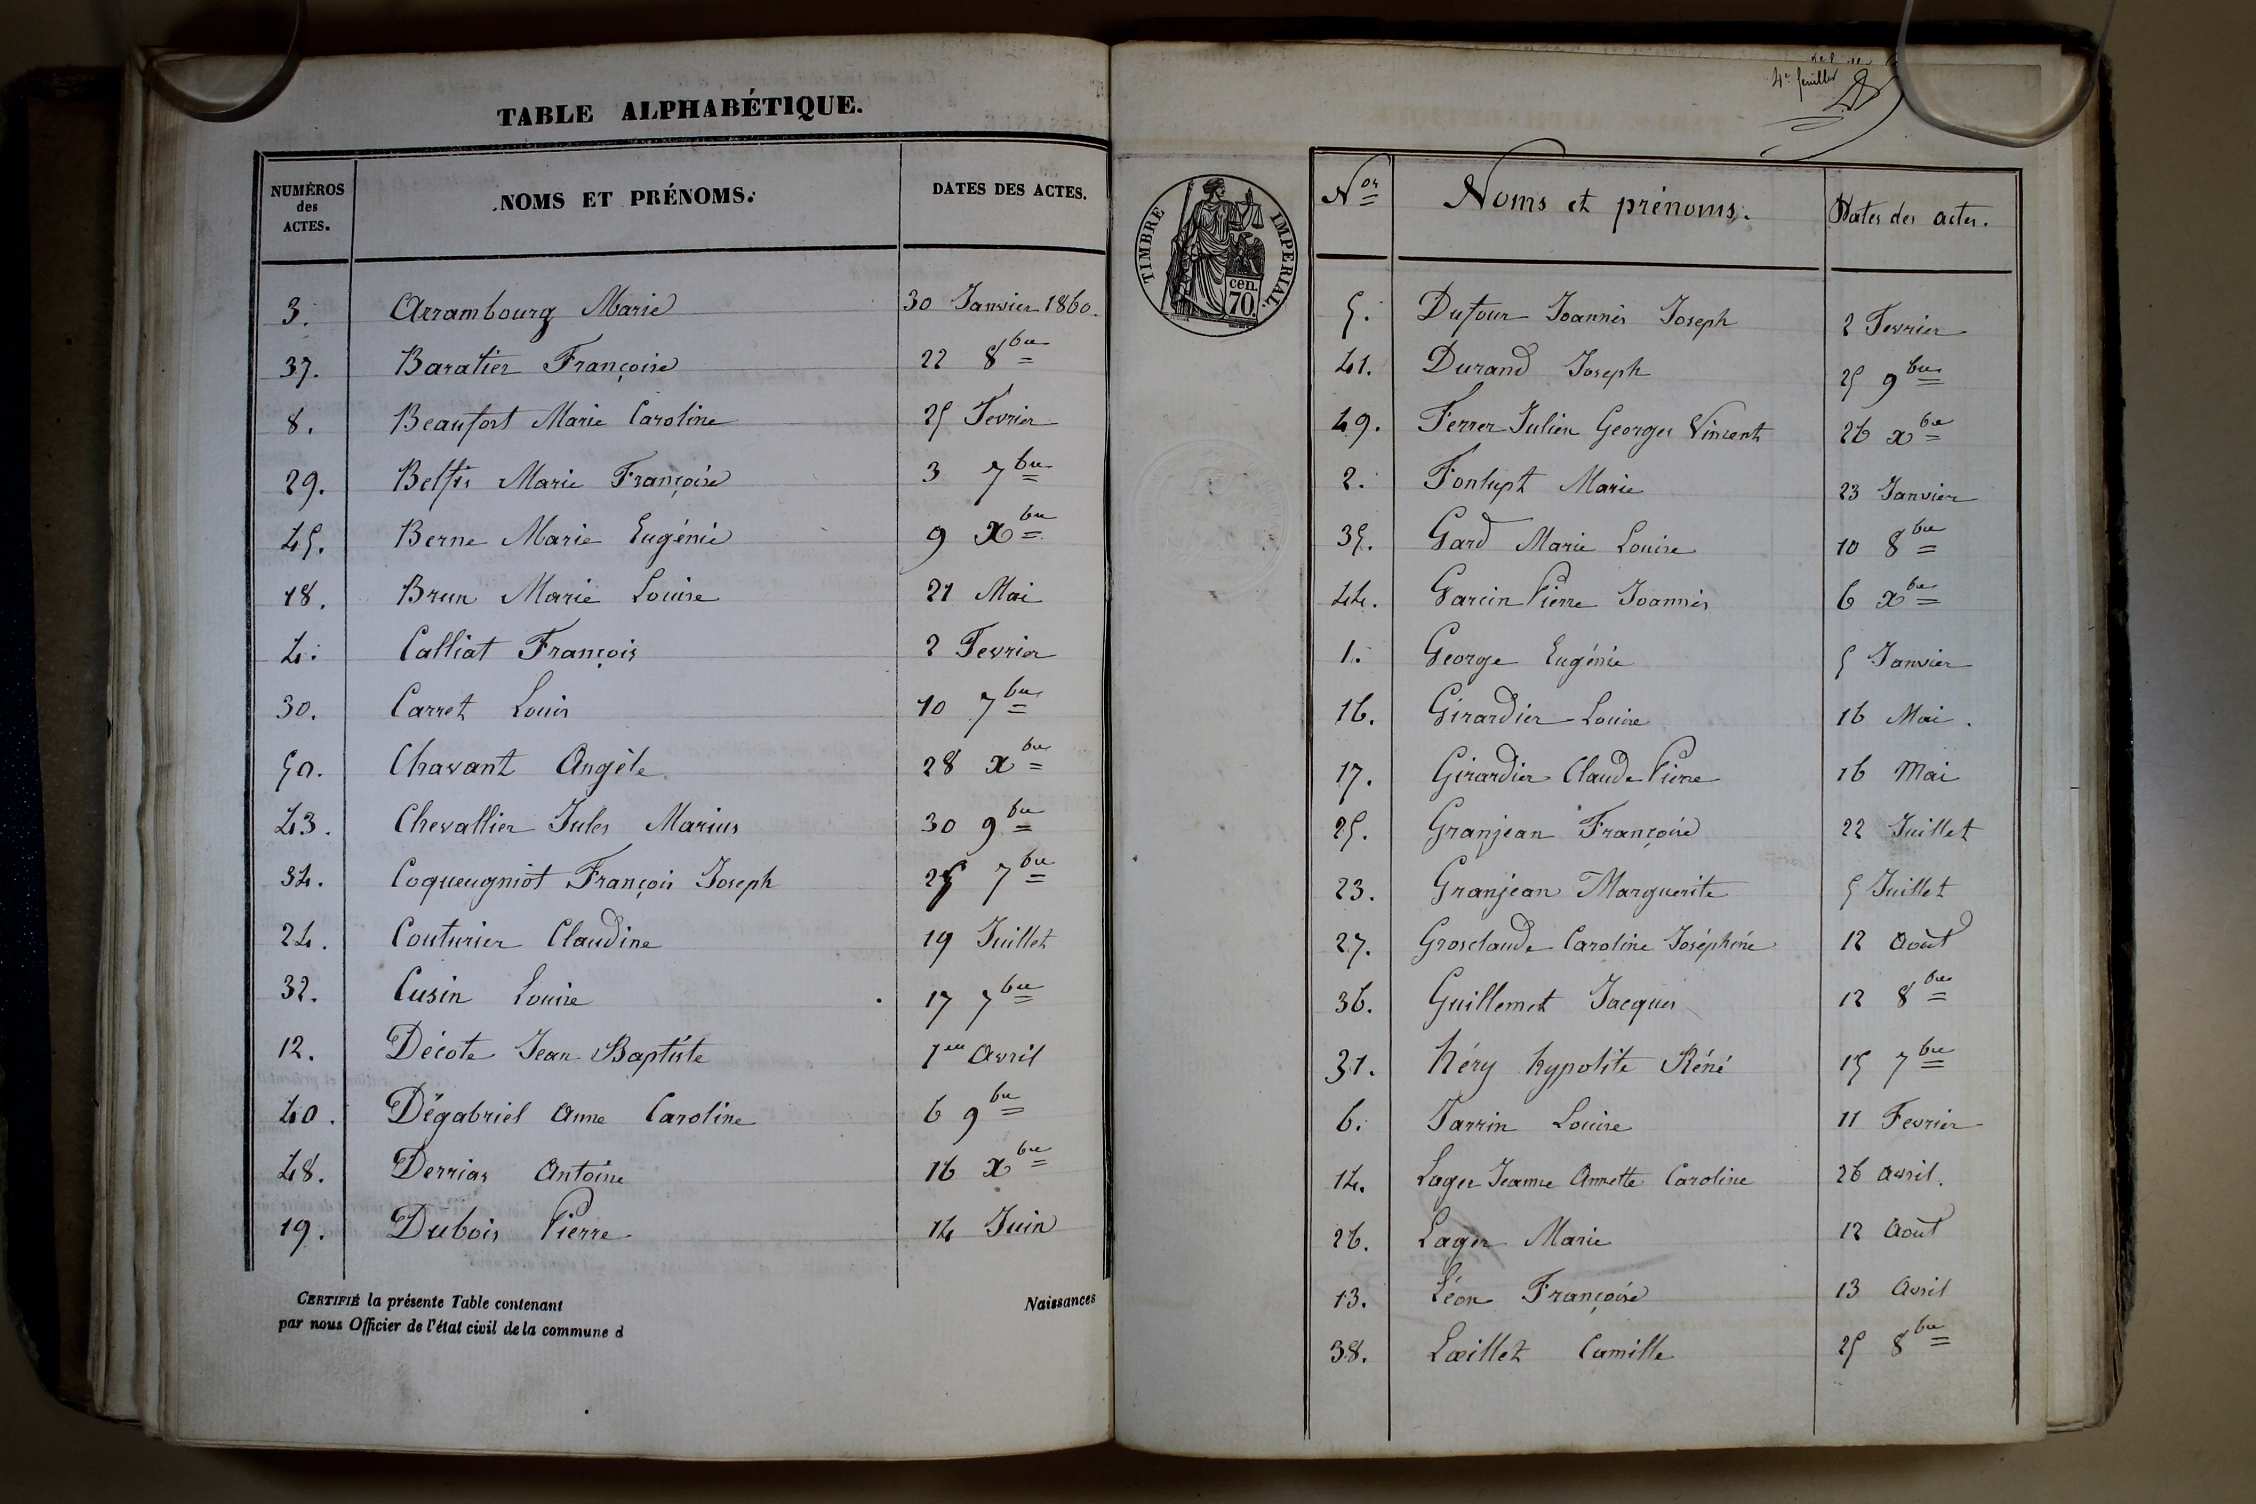 TABLE ALPHABÉTIQUE.
NUMÉROS des ACTES. NOMS ET PRÉNOMS. DATES DES ACTES.
3. Arrambourg Marie 30 Janvier 1860.
37. Baratier Françoise 22 8bre
8. Beaufort Marie Caroline 25 Fevrier
29. Marie Françoise 3 7bre
45. Berne Marie Eugénie 9 Xbre
18. Brun Marie Louise 21 Mai
4. Calliat François 2 Fevrier
30. Carret Louis 10 7bre
50. Chavant Angèle 28 Xbre
43. Chevallier Jules Marius 30 9bre
34. Coqueugniot François Joseph 25 7bre
24. Couturier Claudine 19 Juillet
32. Cusin Louise 17 7bre
12. Décote Jean Baptiste 1er Avril
40. Dégabriel Anne Caroline 6 9bre
48. Derrias Antoine 16 Xbre
19. Dubois Pierre 14 Juin
CERTIFIÉ la présente Table contenant Naissances
par nous Officier de l'état civil de la commune d
4e feuillet
TIMBRE IMPERIAL.
cen.
70.
Nos Noms et prénoms. Dates des actes.
5. Dufour Joannès Joseph 2 Fevrier
41. Durand Joseph 25 9bre
49. Ferrer Julien Georges Vincent 26 Xbre
2. Fontupt Marie 23 Janvier
35. Gard Marie Louise 10 8bre
44. Garcin Pierre Joannès 6 Xbre
1. George Eugénie 5 Janvier
16. Girardier Louise 16 Mai.
17. Girardier Claude Pierre 16 Mai
25. Granjean Françoise 22 Juillet
23. Granjean Marguerite 5 Juillet
27. Grosclaude Caroline Joséphine 12 Août
36. Guillemet Jacques 12 8bre
31. héry hypolite Réné 15 7bre
6. Jarrin Louise 11 Fevrier
14. Lager Jeanne Annette Caroline 26 Avril.
26. Lager Marie 12 Août
13. Léon Françoise 13 Avril
38. Lœillet Camille 25 8bre